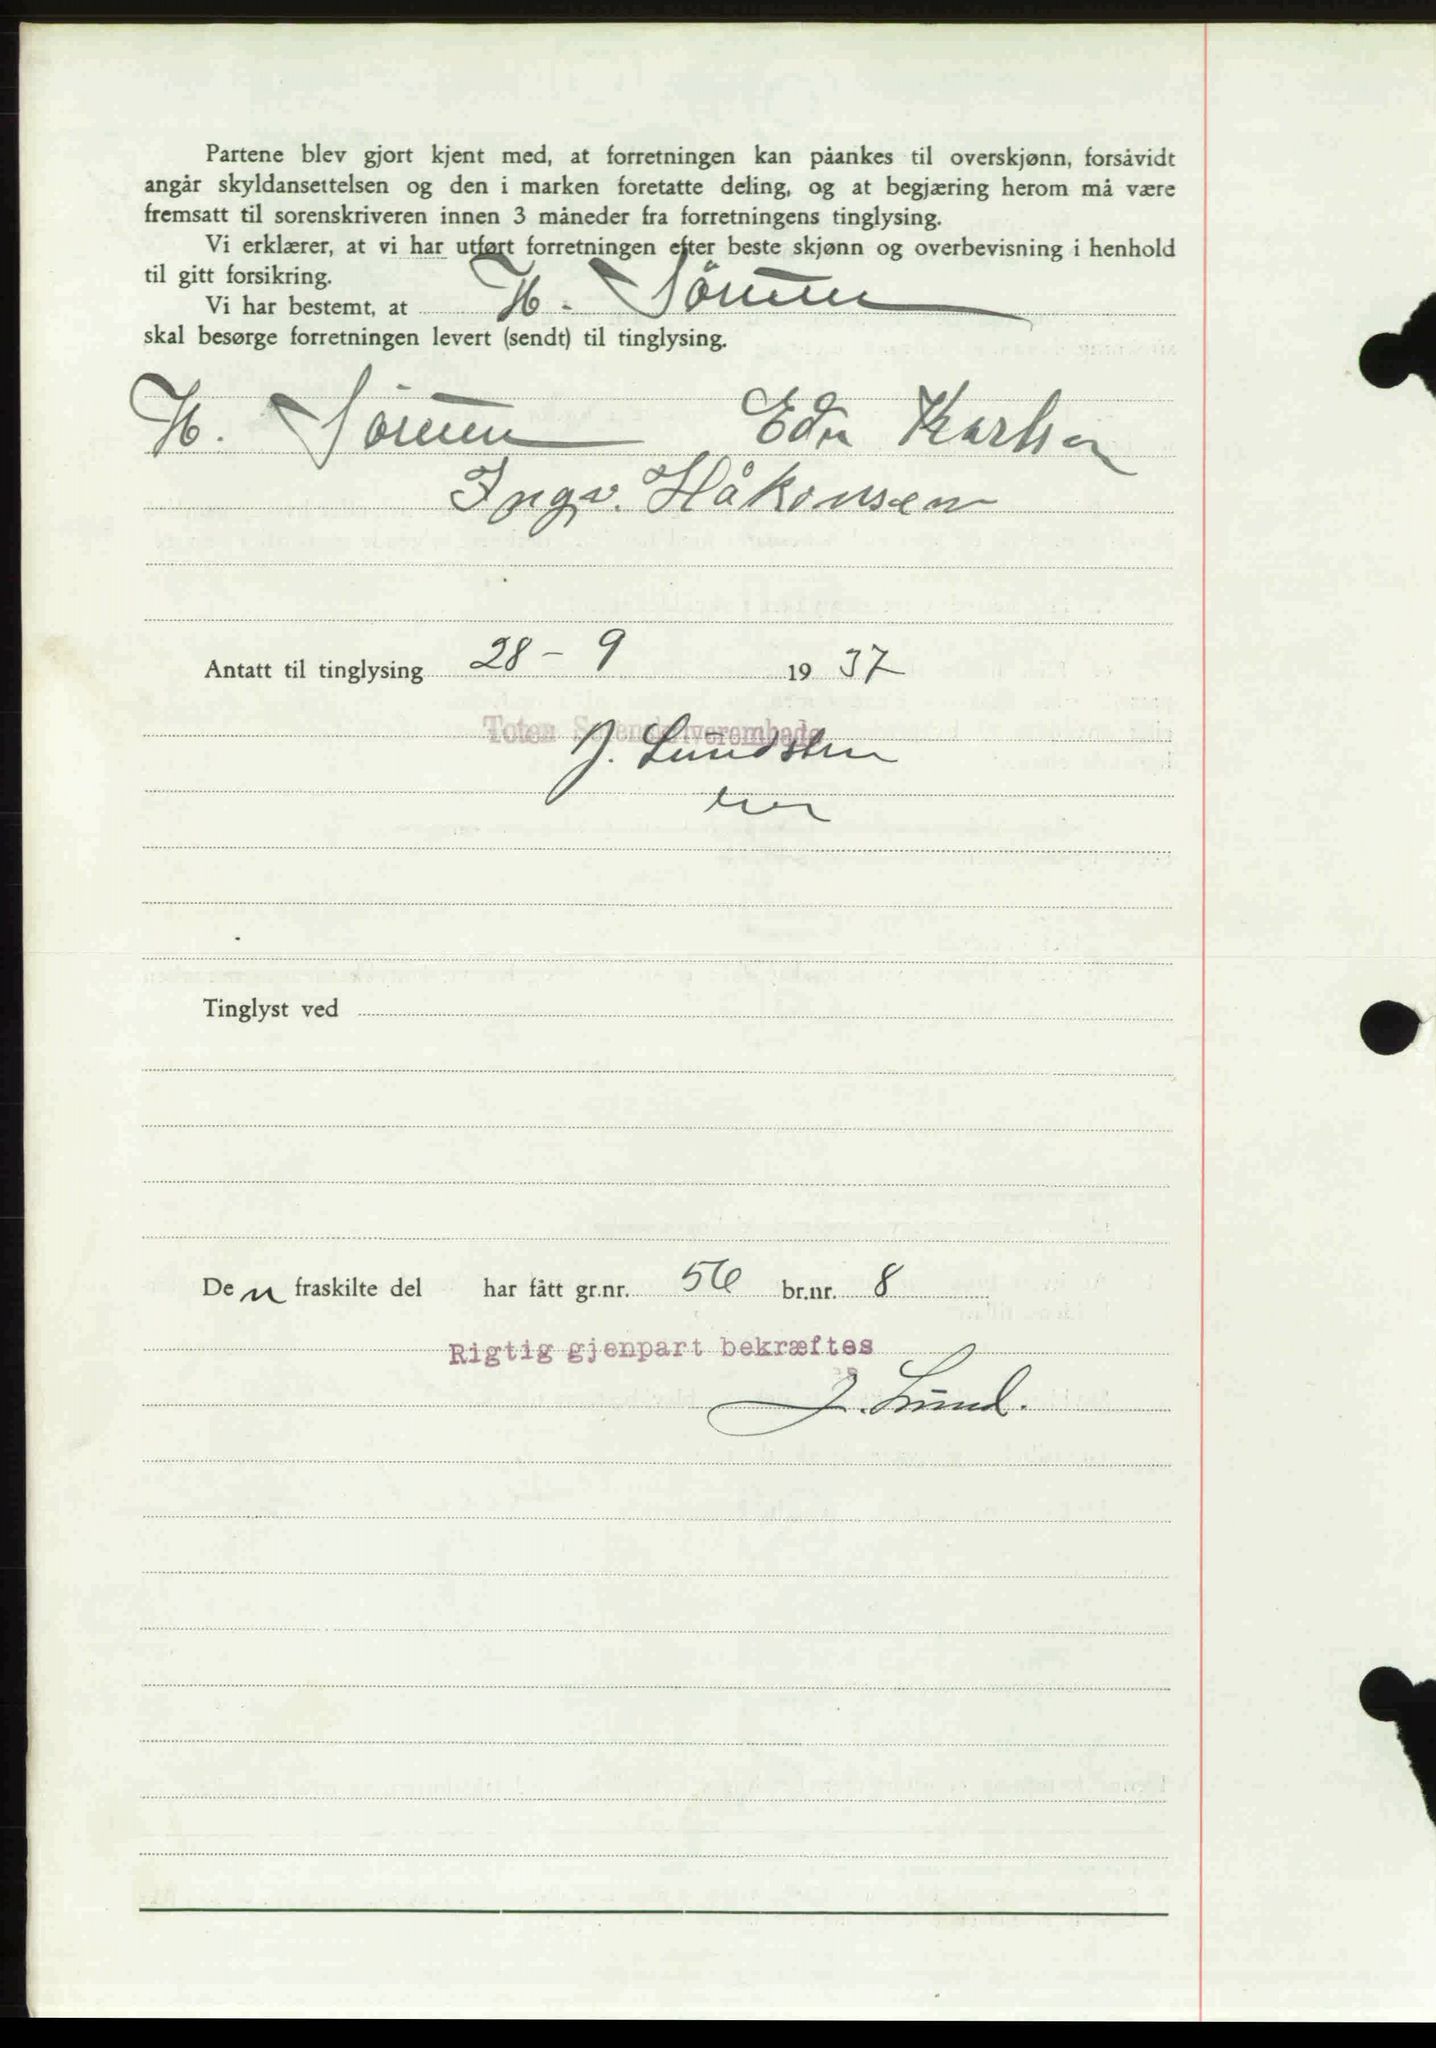 Partene blev gjort kjent med, at forretningen kan påankes til overskjønn, forsåvidt
angår skyldansettelsen og den i marken foretatte deling, og at begjæring herom må være
fremsatt til sorenskriveren innen 3 måneder fra forretningens tinglysing.
Vi erklærer, at vi har utført forretningen efter beste skjønn og overbevisning i henhold
til gitt forsikring.
Vi har bestemt, at H.
skal besørge forretningen levert (sendt) til tinglysing.
H. Edv Karlsen
Ingv. Håkonsen
Antatt til tinglysing 28-9 1937
Toten Sorenskriverembede
J. Lundsten
Tinglyst ved
De n fraskilte del har fått gr.nr. 56 br.nr. 8
Rigtig gjenpart bekræftes
J. Lund.